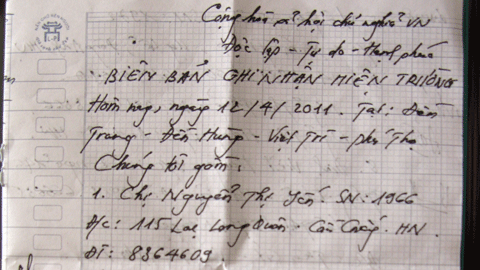 Cộng hòa xã hội chủ nghĩa VN
Độc lập - Tự do - Hạnh phúc
BIÊN BẢN GHI NHẬN HIỆN TRƯỜNG
Hôm nay, ngày 12/4/2011. Tại: Đền
Trung - Đền Hùng - Việt Trì - Phú Thọ
Chúng tôi gồm:
1. Chị Nguyễn Thị Yến. SN: 1966
Đ/c: 115 Lạc Long Quân. Cầu Giấy. HN
ĐT: 8364609.